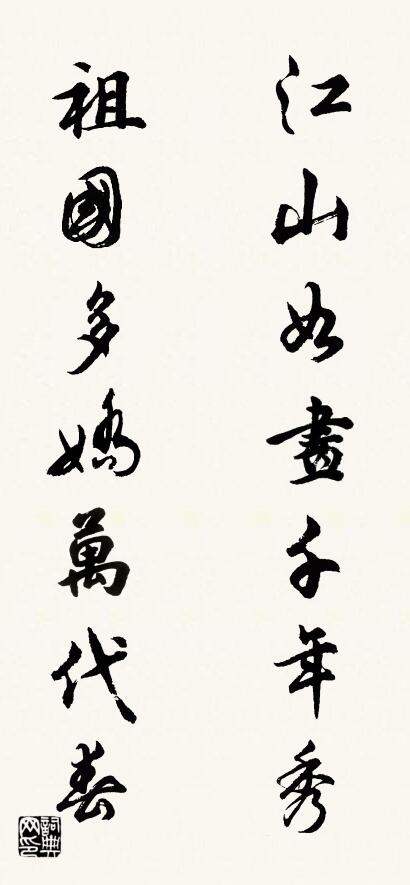 江山如畫千年秀
祖國多嬌萬代春
詞典網印